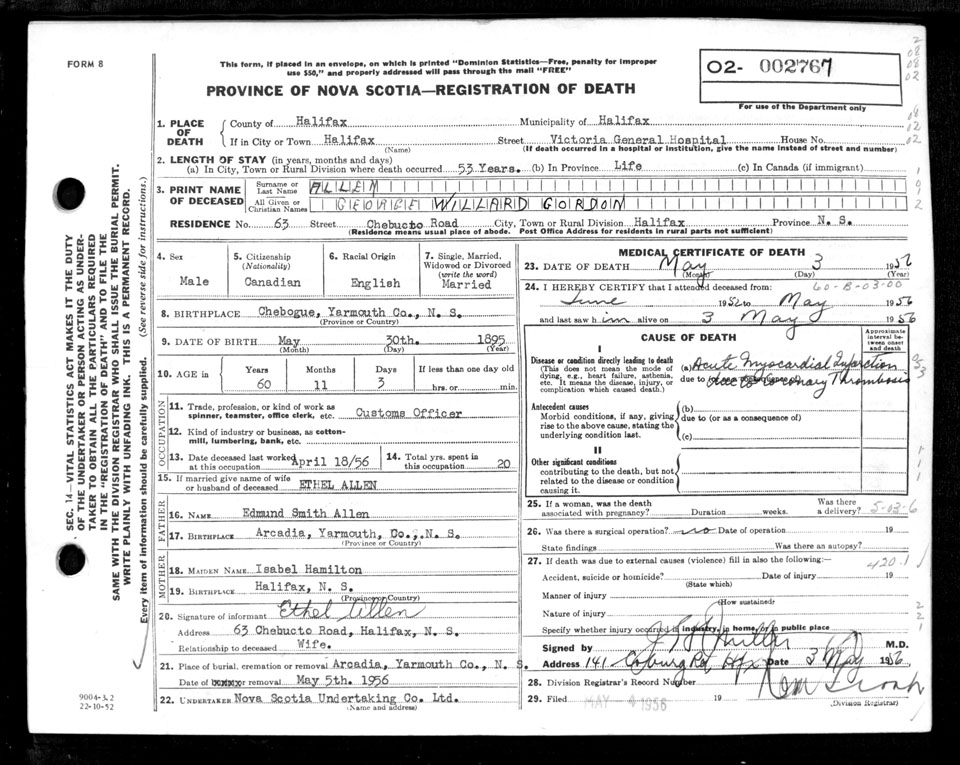 FORM 8
This form, if placed in an envelope, on which is printed "Dominion Statistics—Free, penalty for improper
use $50," and properly addressed will pass through the mail "FREE"
PROVINCE OF NOVA SCOTIA—REGISTRATION OF DEATH
02- 002767
For use of the Department only
1. PLACE OF DEATH
County of Halifax Municipality of Halifax
If in City or Town Halifax Street Victoria General Hospital House No.
(Name) (If death occurred in a hospital or institution, give the name instead of street and number)
2. LENGTH OF STAY (in years, months and days)
(a) In City, Town or Rural Division where death occurred 53 Years. (b) In Province Life (c) In Canada (if immigrant)
3. PRINT NAME OF DECEASED
Surname or Last Name ALLEN
All Given or Christian Names GEORGE WILLARD GORDON
RESIDENCE No. 63 Street Chebucto Road City, Town or Rural Division Halifax Province N. S.
(Residence means usual place of abode. Post Office Address for residents in rural parts not sufficient)
4. Sex
Male
5. Citizenship
(Nationality)
Canadian
6. Racial Origin
English
7. Single, Married,
Widowed or Divorced
(write the word)
Married
8. BIRTHPLACE Chebogue, Yarmouth Co., N. S.
(Province or Country)
9. DATE OF BIRTH May 30th. 1895
(Month) (Day) (Year)
10. AGE in Years Months Days If less than one day old
60 11 3 hrs. or min.
OCCUPATION
11. Trade, profession, or kind of work as
spinner, teamster, office clerk, etc. Customs Officer
12. Kind of industry or business, as cotton-
mill, lumbering, bank, etc.
13. Date deceased last worked
at this occupation April 18/56
14. Total yrs. spent in
this occupation 20
15. If married give name of wife
or husband of deceased ETHEL ALLEN
FATHER
16. NAME Edmund Smith Allen
17. BIRTHPLACE Arcadia, Yarmouth, Co., N. S.
(Province or Country)
MOTHER
18. MAIDEN NAME Isabel Hamilton
19. BIRTHPLACE Halifax, N. S.
(Province or Country)
20. Signature of informant Ethel Allen
Address 63 Chebucto Road, Halifax, N. S.
Relationship to deceased Wife.
21. Place of burial, cremation or removal Arcadia, Yarmouth Co., N. S.
Date of or removal May 5th. 1956
22. UNDERTAKER Nova Scotia Undertaking Co. Ltd.
(Name and address)
MEDICAL CERTIFICATE OF DEATH
23. DATE OF DEATH May 3 1956
(Month) (Day) (Year)
24. I HEREBY CERTIFY that I attended deceased from: 60-B-03-00
June 1952 to May 1956
and last saw him alive on 3 May 1956
CAUSE OF DEATH
Approximate
interval be-
tween onset
and death
I
Disease or condition directly leading to death
(This does not mean the mode of
dying, e.g., heart failure, asthenia,
etc. It means the disease, injury, or
complication which caused death.)
(a) Acute Myocardial Infarction
due to (or as a consequence of)
due to Coronary Thrombosis
Antecedent causes
Morbid conditions, if any, giving
rise to the above cause, stating the
underlying condition last.
(b)
due to (or as a consequence of)
(c)
II
Other significant conditions
contributing to the death, but not
related to the disease or condition
causing it.
25. If a woman, was the death
associated with pregnancy? Duration weeks. Was there
a delivery? 5-03-6
26. Was there a surgical operation? no Date of operation 19
State findings Was there an autopsy?
27. If death was due to external causes (violence) fill in also the following: 420.1
Accident, suicide or homicide? Date of injury 19
(State which)
Manner of injury
(How sustained)
Nature of injury
Specify whether injury occurred in industry, in home, or in public place
Signed by M.D.
Address 141 Coburg Rd Hfx Date 3 May 1956
28. Division Registrar's Record Number
29. Filed MAY - 4 1956 19
(Division Registrar)
SEC. 14—VITAL STATISTICS ACT MAKES IT THE DUTY
OF THE UNDERTAKER OR PERSON ACTING AS UNDER-
TAKER TO OBTAIN ALL THE PARTICULARS REQUIRED
IN THE "REGISTRATION OF DEATH" AND TO FILE THE
SAME WITH THE DIVISION REGISTRAR WHO SHALL ISSUE THE BURIAL PERMIT.
WRITE PLAINLY WITH UNFADING INK. THIS IS A PERMANENT RECORD.
Every item of information should be carefully supplied. (See reverse side for instructions.)
9004-3.2
22-10-52